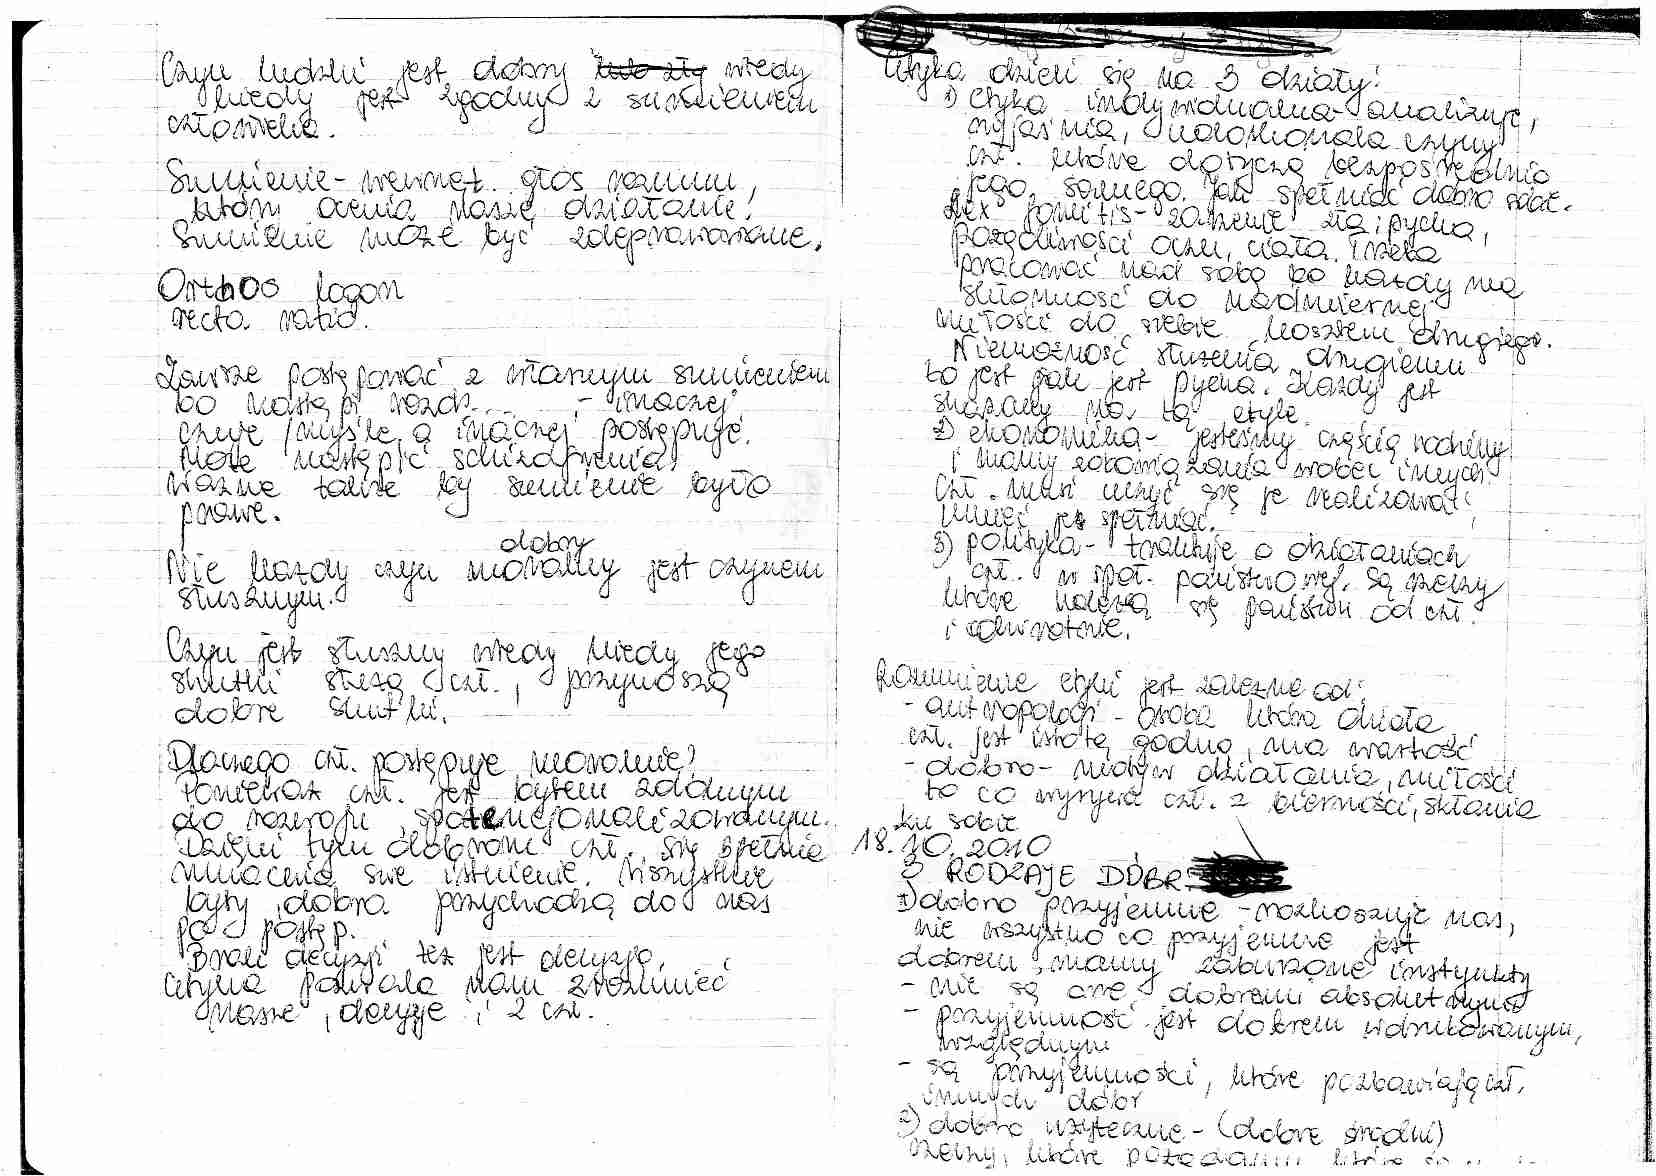 Czyn ludzki jest dobry lub zły wtedy
kiedy jest zgodny z sumieniem
człowieka.
Sumienie - wewnęt. głos rozumu,
który ocenia nasze działanie!
Sumienie może być zdeprawowane.
Orthos logon
recta ratio.
Zawsze postępować z własnym sumieniem
bo nastąpi rozdz. - inaczej
czuje /myśle, a inaczej postępuje.
Może nastąpić schizofrenia.
Ważne także by sumienie było
prawe.
dobry
Nie każdy czyn moralny jest czynem
słusznym.
Czyn jest słuszny wtedy kiedy jego
skutki służą czł., przynoszą
dobre skutki.
Dlaczego czł. postępuje moralnie?
Ponieważ czł. jest bytem zdolnym
do rozwoju, spotencjonalizowanym.
Dzięki tym dobrom czł. się spełnia
umacnia swe istnienie. Wszystkie
byty, dobra przychodzą do nas
po postęp.
Brak decyzji też jest decyzją.
Etyka pozwala nam zrozumieć
nasze decyzje i 2 czł.
Etyka dzieli się na 3 działy:
1) etyka indywidualna - analizuje,
wyjaśnia, udoskonala czyny
czł. które dotyczą bezpośrednio
jego samego. Jak spełniać dobro
Lex fomitis - zarzewie zła; pycha,
pożądliwości oczu, ciała. Trzeba
pracować nad sobą bo każdy ma
skłonność do nadmiernej
miłości do siebie kosztem drugiego.
Niemożność służenia drugiemu
to jest jak jest pycha. Każdy jest
skazany na tą etykę.
2) ekonomika - jesteśmy częścią rodziny
i mamy zobowiązania wobec innych.
Czł. musi uczyć się je realizować i
umieć je spełniać.
3) polityka - traktuje o działaniach
czł. w społ. państwowej. Są rzeczy
które należą się państwu od czł.
i odwrotnie.
Rozumienie etyki jest zależne od:
- antropologi - osoba która działa
czł. jest istotą godną, ma wartość
- dobro - motyw działania, miłości
to co wyrywa czł. z bierności, skłania
ku sobie
18.10.2010
3 RODZAJE DÓBR:
1) dobro przyjemne - rozkoszuje nas,
nie wszystko co przyjemne jest
dobrem, mamy zaburzone instynkty
- nie są one dobrami absolutnymi
- przyjemność jest dobrem wdrukowanym,
względnym
- są przyjemności, które pozbawiają czł.
innych dóbr
2) dobro użyteczne - (dobre środki)
rzeczy, które pożądamy, które